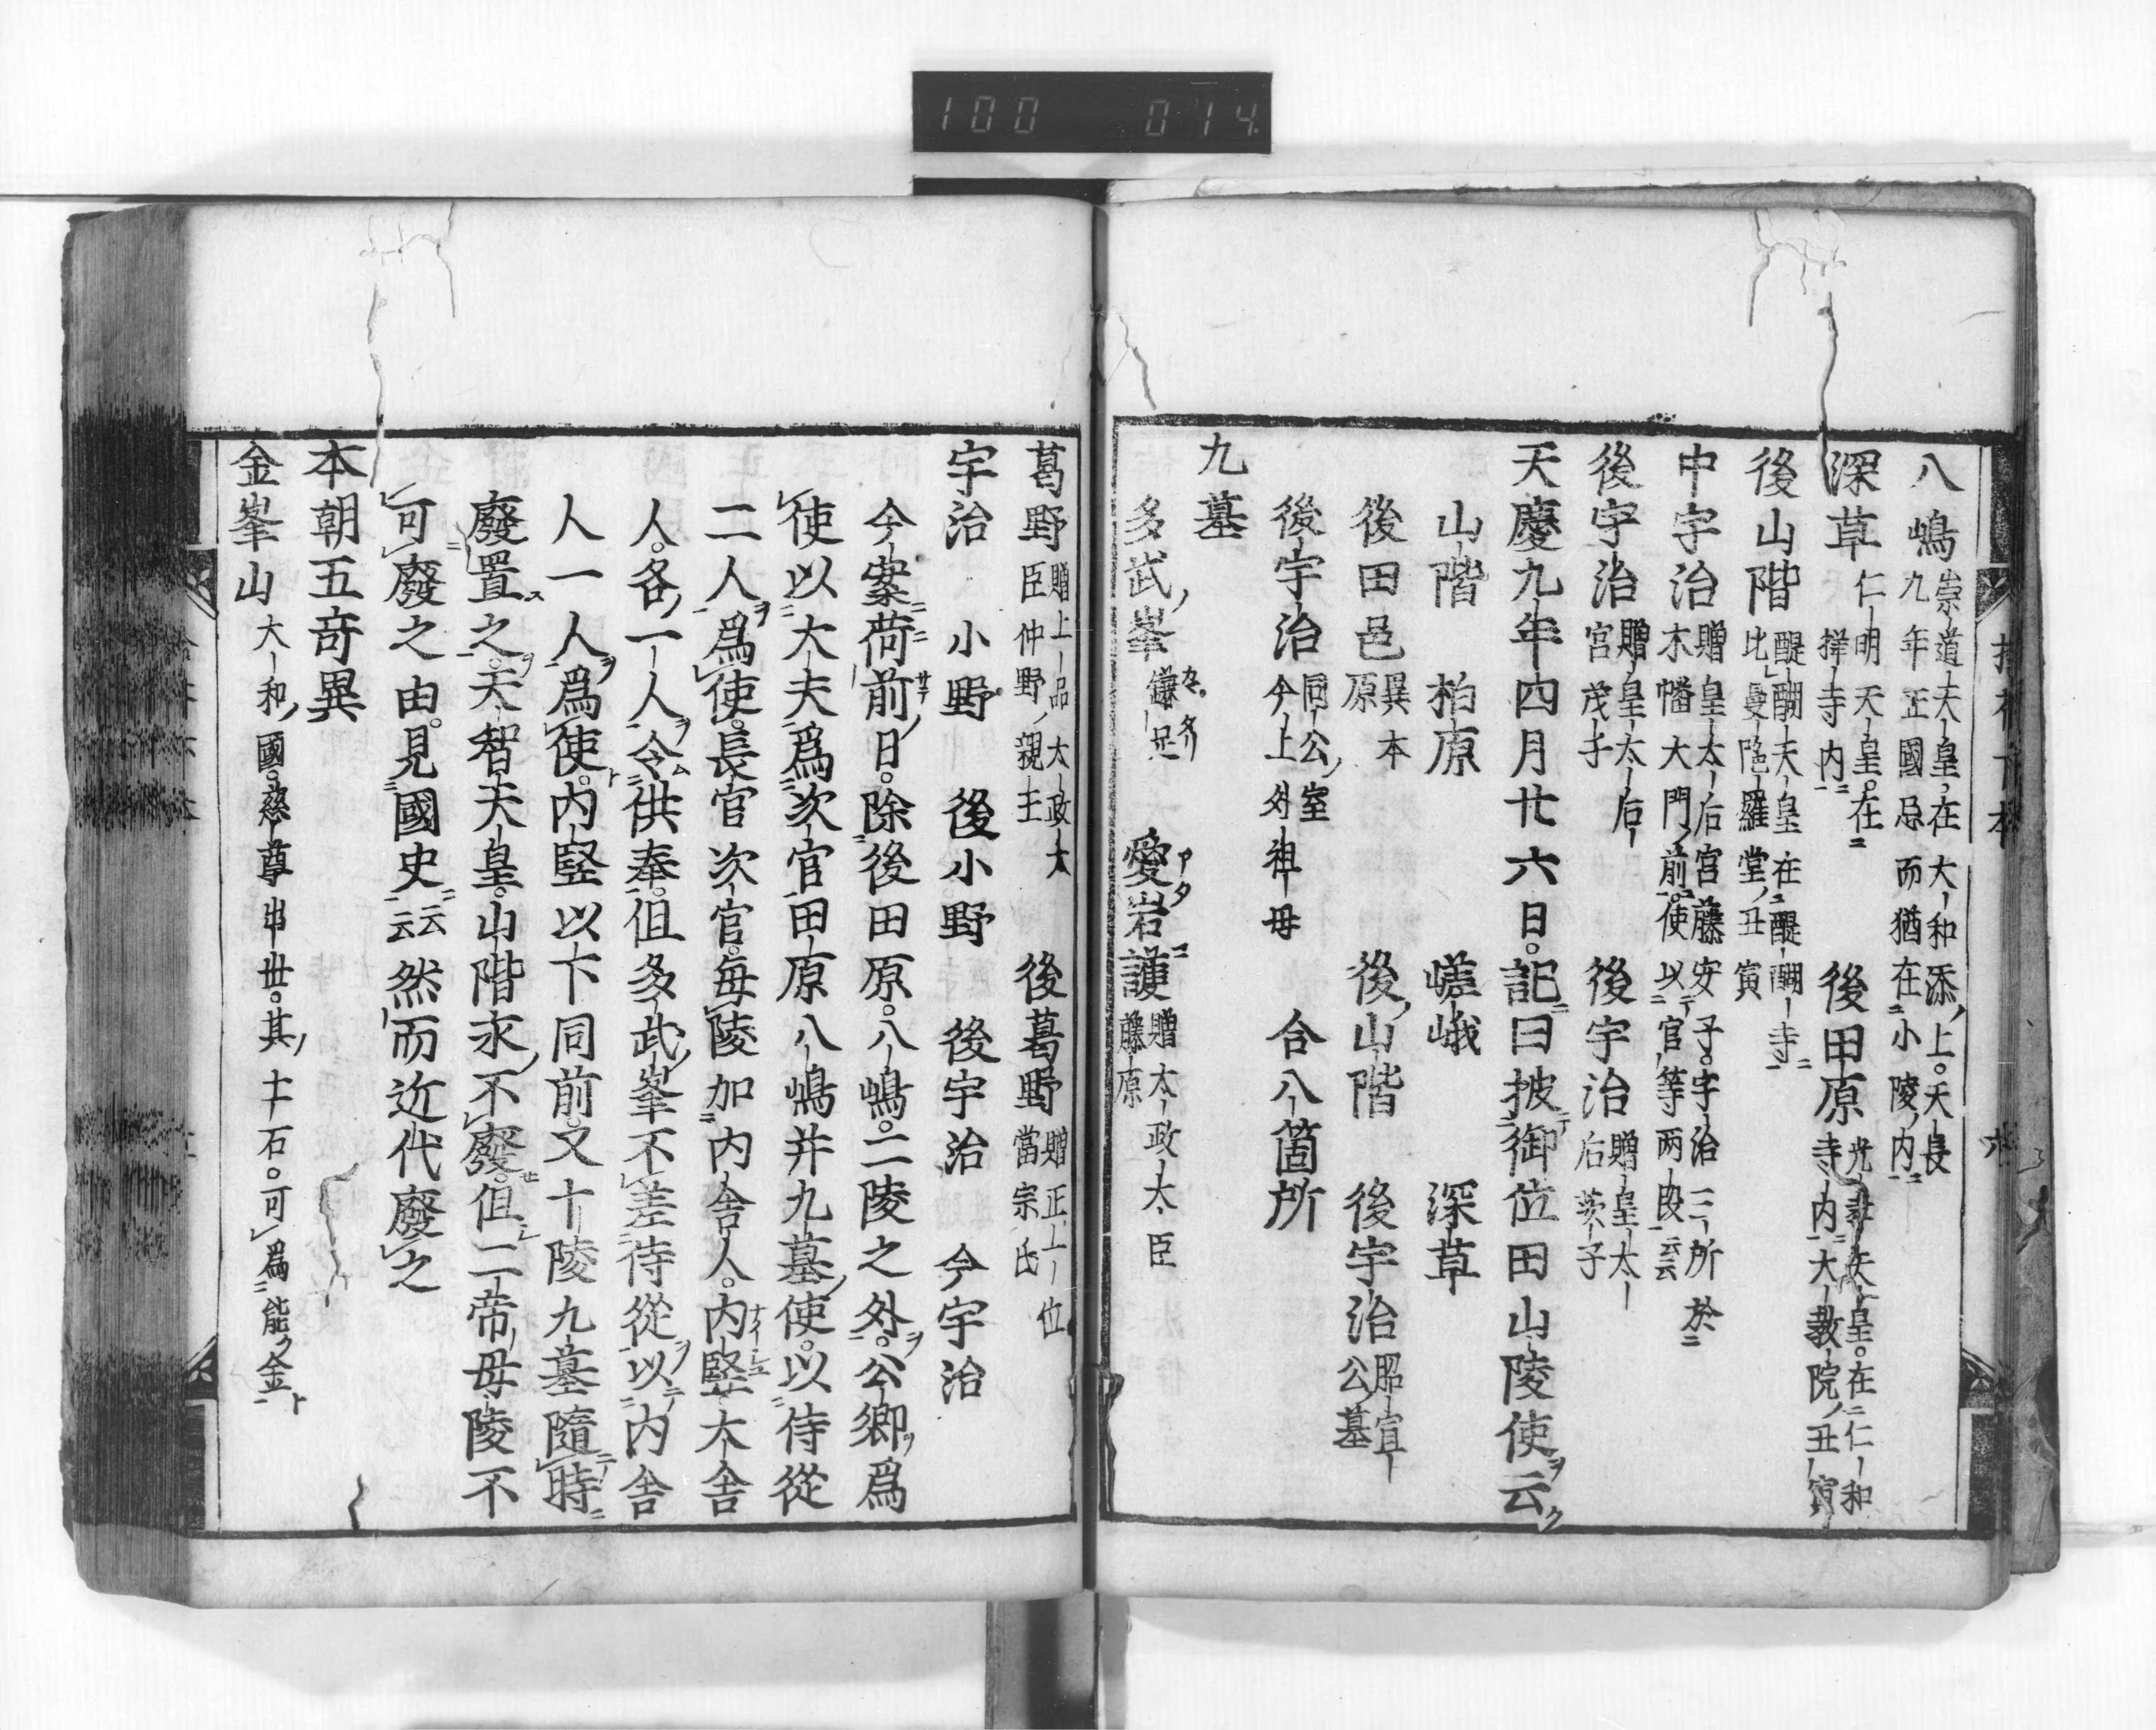 100 014
八嶋崇道天皇在大和添上。天長
九年正國忌而猶在小陵内
深草仁明天皇。在
擇寺内 後田原光非天皇。在仁和
寺内大教院丑寅
後山階醍醐天皇在醍醐寺
比曼陁羅堂丑寅
中宇治贈皇太后宮藤安子。宇治三所於
木幡大門前。使以官等兩段云云
後宇治贈皇太后
宮茂子 後宇治贈皇太
后茨子
天慶九年四月廿六日。記曰披御位田山陵使云
山階 柏原 嵯峨 深草
後田邑異本
原 後山階 後宇治昭宣
公墓
後宇治同公室
今上外祖母 合八箇所
九墓
多武峯鎌足 愛岩護贈太政大臣
藤原
葛野贈上品太政大
臣仲野親王 後葛野贈正上位
當宗氏
宇治 小野 後小野 後宇治 今宇治
今案荷前日。除後田原。八嶋。二陵之外。公卿爲
使以大夫爲次官田原八嶋并九墓使。以侍從
二人爲使。長官次官。每陵加内舎人。内竪大舎
人。各一人令供奉。但多武峯不差侍從以内舎
人一人爲使。内竪以下同前。又十陵九墓隨時
廢置之。天智天皇。山階永不廢。但二帝母陵不
可廢之由。見國史云云然而近代廢之
本朝五竒異
金峯山大和國。慈尊出世。其十石。可爲能金